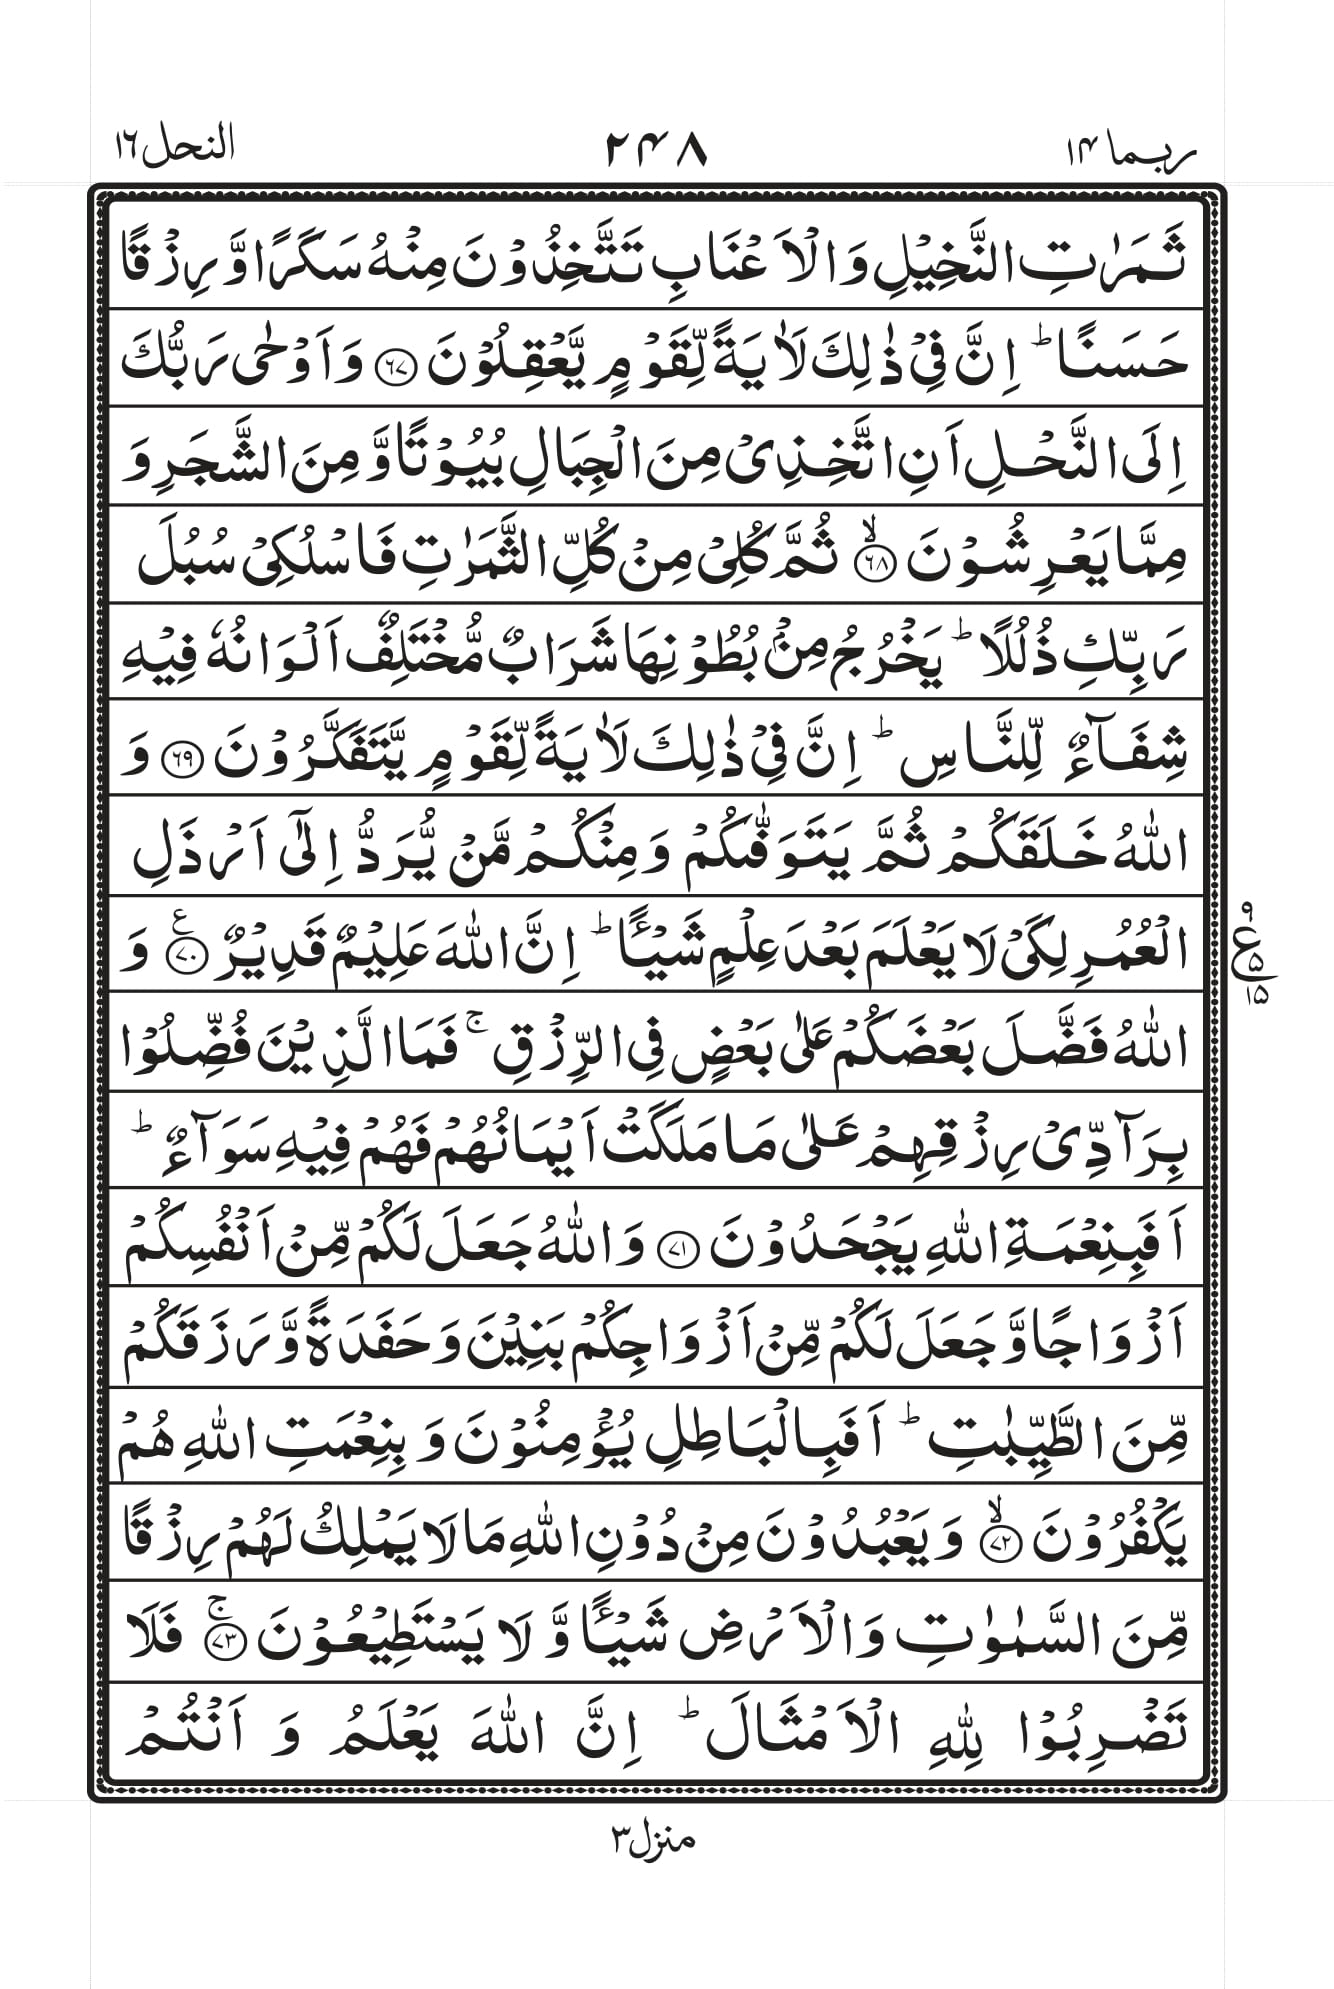 ربما ١٤ ٢٤٨ النحل ١٦
ثَمَرٰتِ النَّخِيْلِ وَالْاَعْنَابِ تَتَّخِذُوْنَ مِنْهُ سَكَرًا وَّرِزْقًا
حَسَنًا ؕ اِنَّ فِيْ ذٰلِكَ لَاٰيَةً لِّقَوْمٍ يَّعْقِلُوْنَ ﴿٦٧﴾ وَاَوْحٰى رَبُّكَ
اِلَى النَّحْلِ اَنِ اتَّخِذِيْ مِنَ الْجِبَالِ بُيُوْتًا وَّمِنَ الشَّجَرِ وَ
مِمَّا يَعْرِشُوْنَ ﴿٦٨﴾ ۙ ثُمَّ كُلِيْ مِنْ كُلِّ الثَّمَرٰتِ فَاسْلُكِيْ سُبُلَ
رَبِّكِ ذُلُلًا ؕ يَخْرُجُ مِنْۢ بُطُوْنِهَا شَرَابٌ مُّخْتَلِفٌ اَلْوَانُهٗ فِيْهِ
شِفَآءٌ لِّلنَّاسِ ؕ اِنَّ فِيْ ذٰلِكَ لَاٰيَةً لِّقَوْمٍ يَّتَفَكَّرُوْنَ ﴿٦٩﴾ وَ
اللّٰهُ خَلَقَكُمْ ثُمَّ يَتَوَفّٰىكُمْ وَمِنْكُمْ مَّنْ يُّرَدُّ اِلٰٓى اَرْذَلِ
الْعُمُرِ لِكَيْ لَا يَعْلَمَ بَعْدَ عِلْمٍ شَيْـًٔا ؕ اِنَّ اللّٰهَ عَلِيْمٌ قَدِيْرٌ ﴿٧٠﴾ ع وَ
٩ ع ٥ ١٥
اللّٰهُ فَضَّلَ بَعْضَكُمْ عَلٰى بَعْضٍ فِي الرِّزْقِ ۚ فَمَا الَّذِيْنَ فُضِّلُوْا
بِرَآدِّيْ رِزْقِهِمْ عَلٰى مَا مَلَكَتْ اَيْمَانُهُمْ فَهُمْ فِيْهِ سَوَآءٌ ؕ
اَفَبِنِعْمَةِ اللّٰهِ يَجْحَدُوْنَ ﴿٧١﴾ وَاللّٰهُ جَعَلَ لَكُمْ مِّنْ اَنْفُسِكُمْ
اَزْوَاجًا وَّجَعَلَ لَكُمْ مِّنْ اَزْوَاجِكُمْ بَنِيْنَ وَحَفَدَةً وَّرَزَقَكُمْ
مِّنَ الطَّيِّبٰتِ ؕ اَفَبِالْبَاطِلِ يُؤْمِنُوْنَ وَبِنِعْمَتِ اللّٰهِ هُمْ
يَكْفُرُوْنَ ﴿٧٢﴾ ۙ وَيَعْبُدُوْنَ مِنْ دُوْنِ اللّٰهِ مَا لَا يَمْلِكُ لَهُمْ رِزْقًا
مِّنَ السَّمٰوٰتِ وَالْاَرْضِ شَيْـًٔا وَّلَا يَسْتَطِيْعُوْنَ ﴿٧٣﴾ ۚ فَلَا
تَضْرِبُوْا لِلّٰهِ الْاَمْثَالَ ؕ اِنَّ اللّٰهَ يَعْلَمُ وَ اَنْتُمْ
منزل ٣